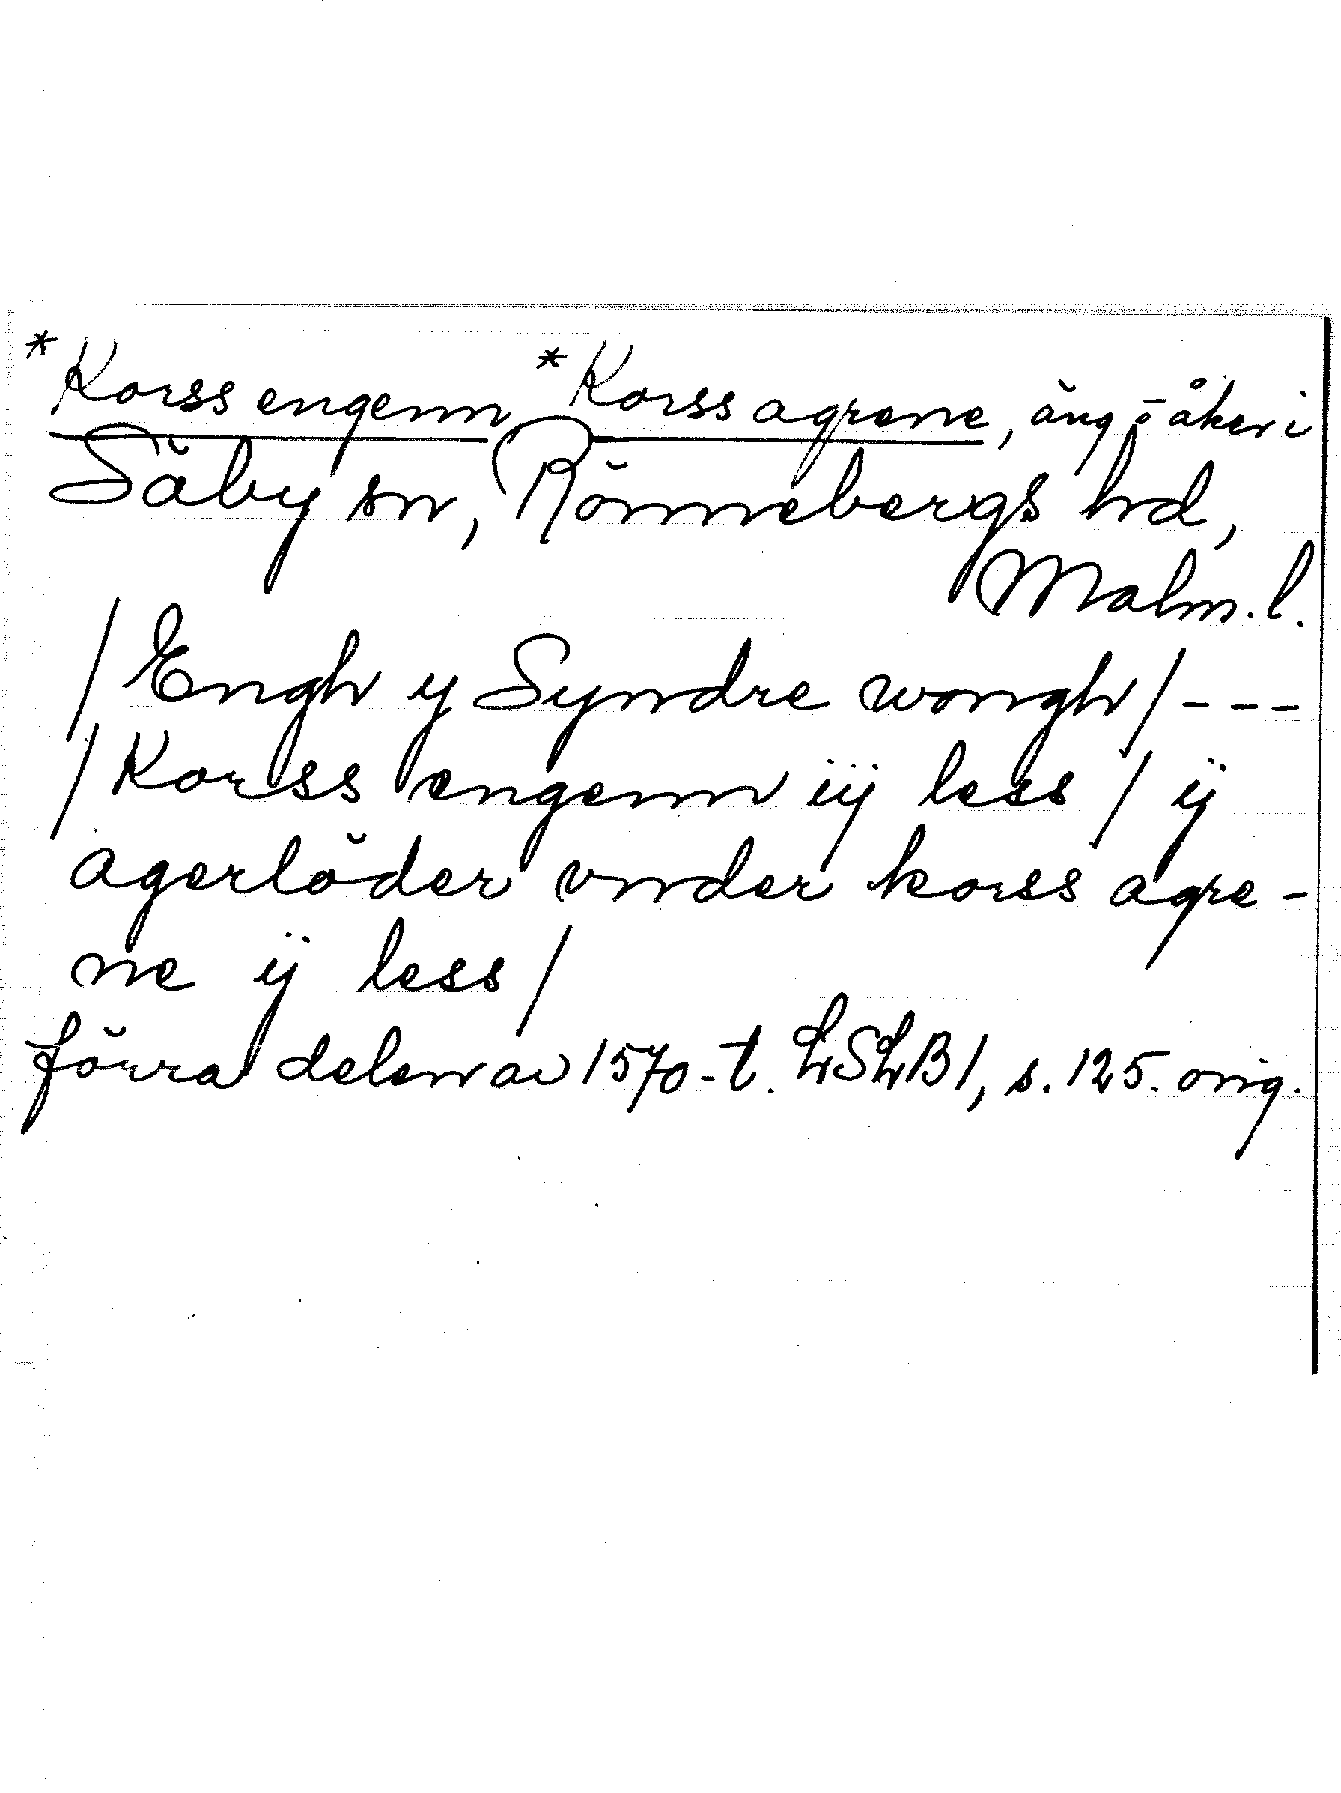 *Korss engenn *Korss agrene, äng o åker i
Säby sn, Rönnebergs hd,
Malm. l.
/ Engh y Syndre wongh / - - -
/ Korss engenn iij less / ij
agerlöder vnder korss agre-
ne ij less /
förra delen av 1570-t. LSLB 1, s. 125. orig.